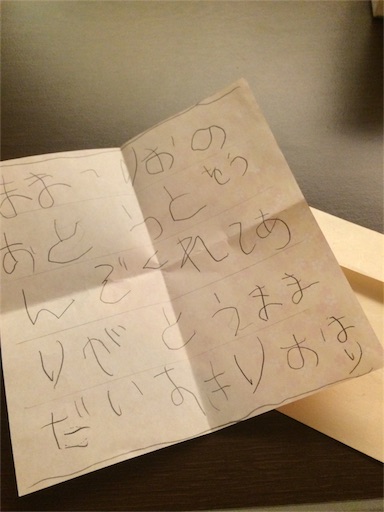 ままへ りおの
おとうとをう
んでくれてあ
りがとうまま
だいすきりおより